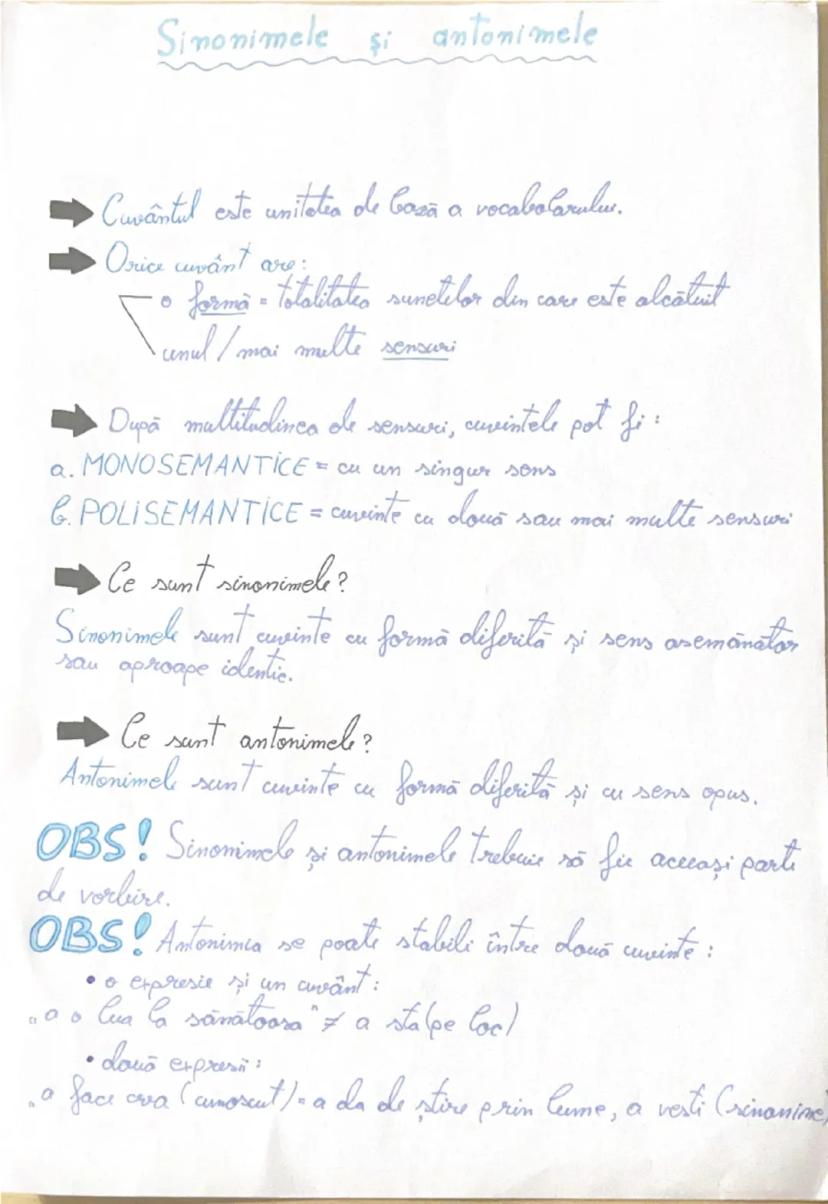 Sinonimele și antonimele
Cuvântul este unitatea de bază a vocabolarului.
Orice cuvânt are:
o formă = totalitatea sunetelor din care este alcătuit
unul / mai multe sensuri
După multitudinea de sensuri, cuvintele pot fi:
a. MONOSEMANTICE = cu un singur sens
b. POLISEMANTICE = cuvinte cu două sau mai multe sensuri
Ce sunt sinonimele?
Sinonimele sunt cuvinte cu formă diferită și sens asemănător
sau aproape identic.
Ce sunt antonimele?
Antonimele sunt cuvinte cu formă diferită și cu sens opus.
OBS! Sinonimele și antonimele trebuie să fie aceeași parte
de vorbire.
OBS! Antonimia se poate stabili între două cuvinte:
• o expresie și un cuvânt:
„a o lua la sănătoasa" ≠ a sta (pe loc)
• două expresii:
„a face (cunoscut) = a da de știre prin lume, a vesti (sinonime)